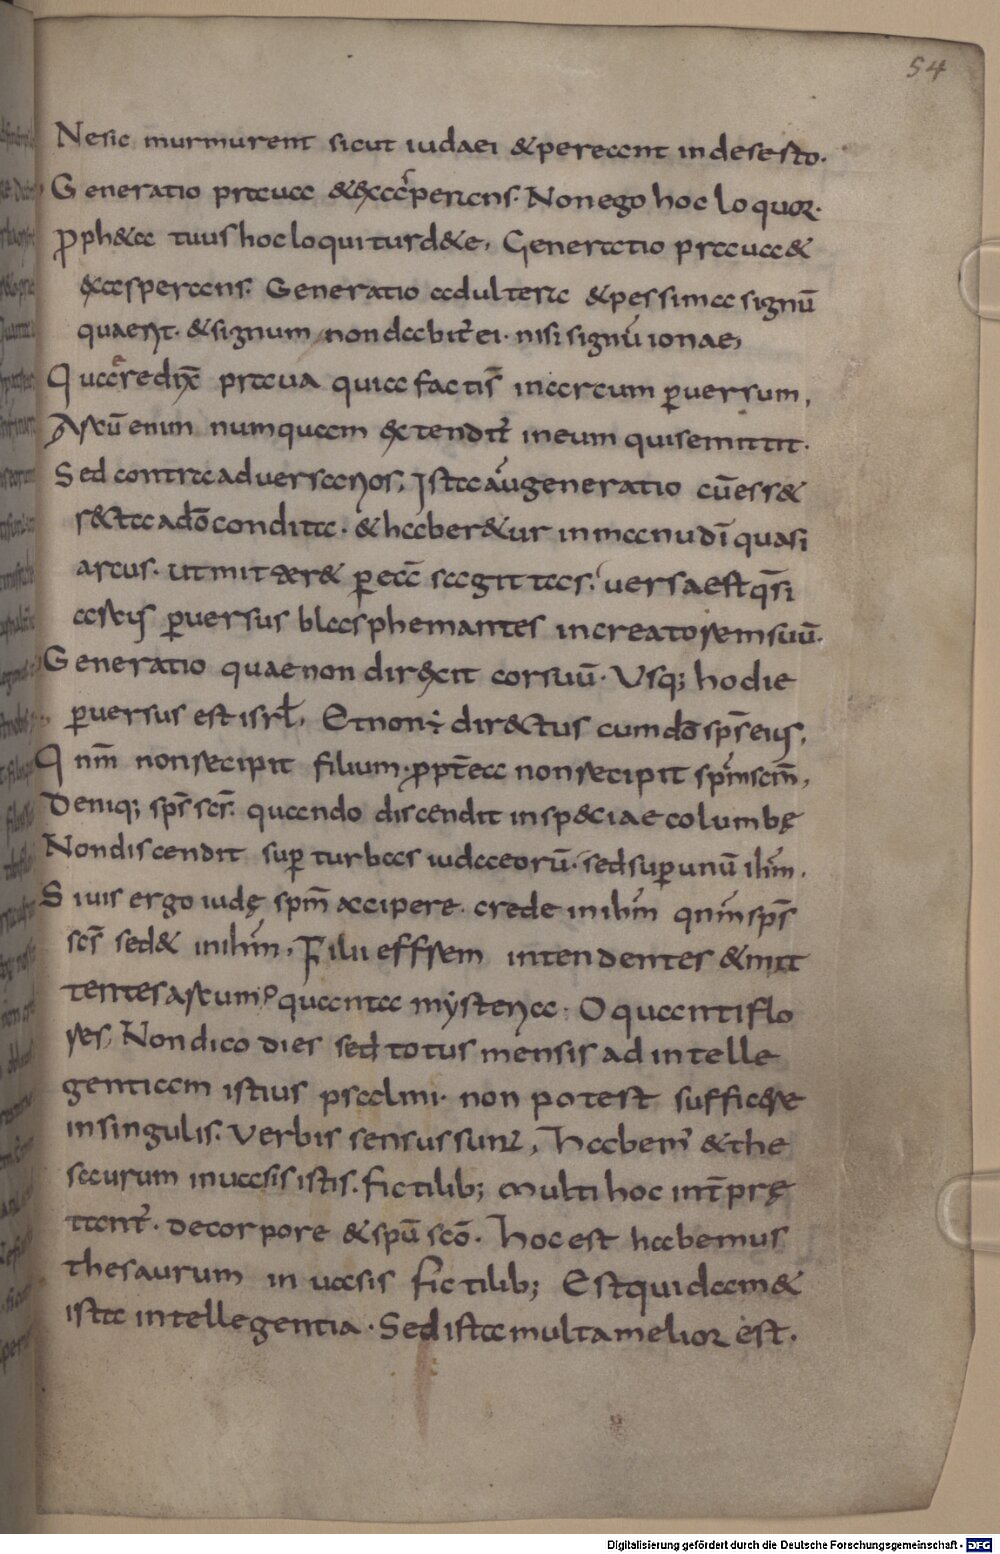 54
Nesic murmurent sicut iudaei & pereant in deserto.
Generatio praua & exasperans. Non ego hoc loquor.
ꝓph&a tuus hoc loquitur d&e, Generatio praua &
exasperans. Generatio adultera & pessima signū
quaerit. & signum non dabit̄ ei. nisi signū ionae,
Quare dix̄ praua quia factis̄ in arcum ꝑuersum,
Arcū enim numquam extendit̄ in eum qui se mittit.
Sed contra aduersarios, Ista aūt generatio cū ess&
r&ta a dō condita. & haber&ur in manu dn̄i quasi
arcus. ut mitter& ꝑ eā sagittas. uersa est q̄si
arcus ꝑuersus blasphemantes in creatorem suū.
Generatio quae non direxit cor suū. Usq; hodie
ꝑuersus est isrł, Et non ÷ directus cum dō sps̄ eius,
Qnm̄ non recipit filium. ꝓpt̄ea non recipit spm̄ scm̄,
Deniq; sps̄ scs̄. quando discendit in speciae columbę
Non discendit suꝑ turbas iudaeorū. sed suꝑ unū ihm̄.
Si uis ergo iudę spm̄ accipere. crede in ihm̄ qnm̄ sps̄
scs̄ sed& in ihm̄. Filii effrem intendentes & mit
tentes arcum? quanta mysterya. O quanti flo
res, Non dico dies sed totus mensis ad intelle
gentiam istius psalmi. non potest sufficere
in singulis. Verbis sensus sunt, Habem̄ & the
saurum in uasis istis. fictilib; multi hoc int̄prę
tant̄. de corpore & spū scō. Hoc est habemus
thesaurum in uasis fictilib; Est quidam &
ista intellegentia. Sed ista multa melior est.
Digitalisierung gefördert durch die Deutsche Forschungsgemeinschaft - DFG